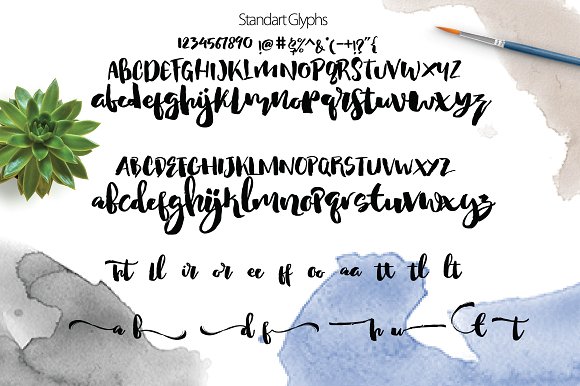 Standart Glyphs
1234567890 !@#$%^&*(-+!?"{
ABCDEFGHIJKLMNOPQRSTUVWXYZ
abcdefghijklmnopqrstuvwxyz
ABCDEFGHIJKLMNOPQRSTUVWXYZ
abcdefghijklmnopqrstuvwxyz
tt ll ir or ee ff oo aa tt tl lt
a b d f h u t t